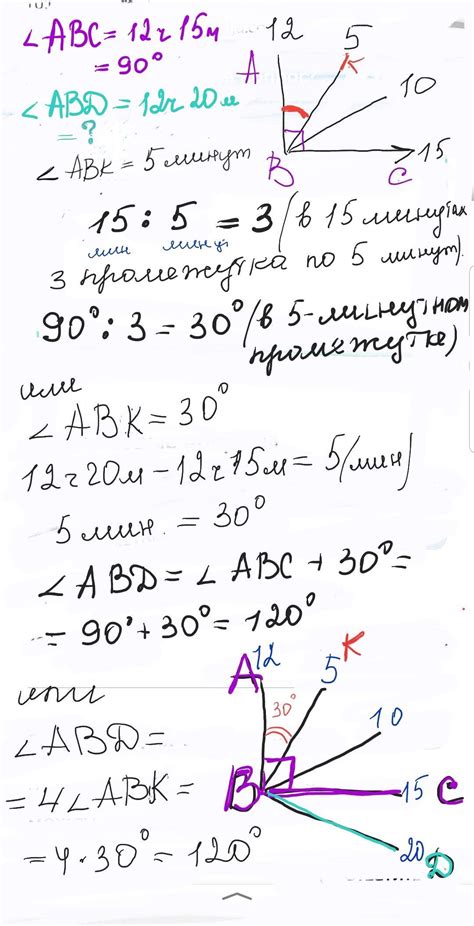 ∠ABC = 12ч 15м
= 90°
∠ABD = 12ч 20м
= ?
∠ABK = 5 минут
12
5
K
A
10
B
C
15
15 : 5 = 3 (в 15 минутах
мин минут
3 промежутка по 5 минут).
90° : 3 = 30° (в 5-минутном
промежутке)
или
∠ABK = 30°
12ч 20м – 12ч 15м = 5 (мин)
5 мин. = 30°
∠ABD = ∠ABC + 30° =
= 90° + 30° = 120°
или
∠ABD =
= 4∠ABK =
= 4 · 30° = 120°
A
12
5
K
30°
10
B
15
C
20
D